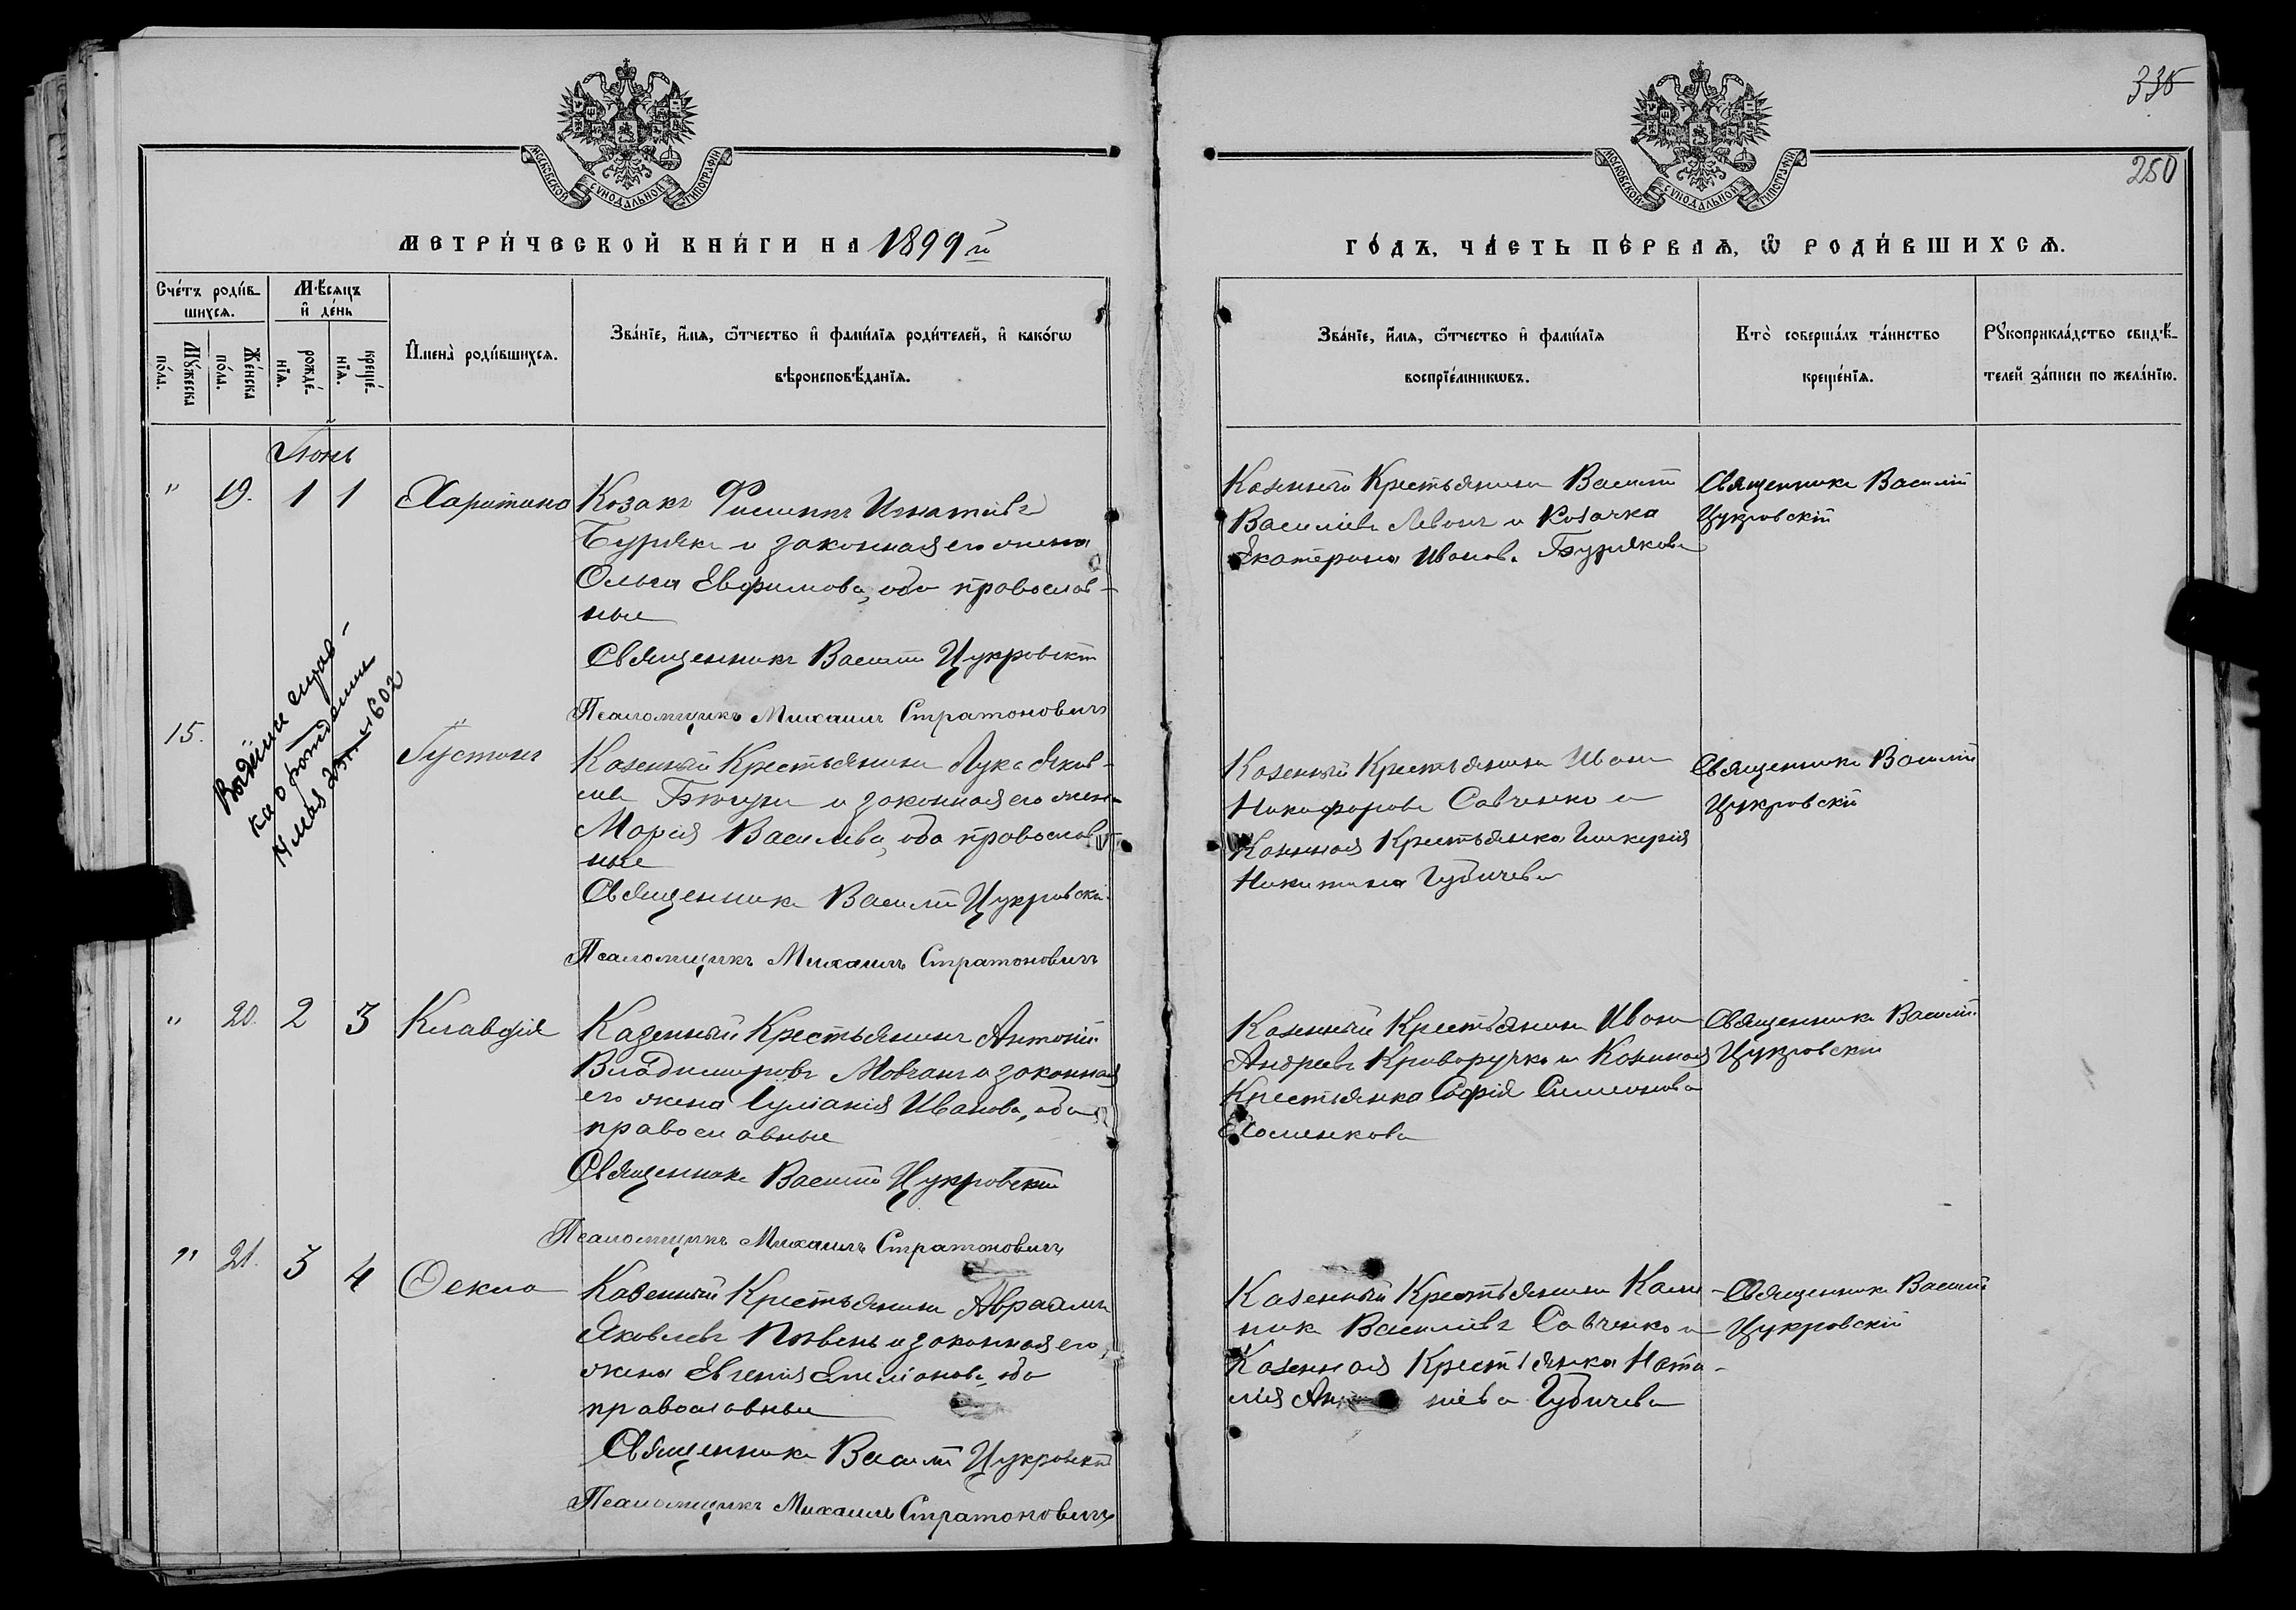 335
250
МОСКОВСКОЙ СУНОДАЛЬНОЙ ТИПОГРАФІИ
МОСКОВСКОЙ СУНОДАЛЬНОЙ ТИПОГРАФІИ
МЕТРИ́ЧЕСКОЙ КНИ́ГИ НА 1899 й
ГО́ДЪ, ЧА́СТЬ ПЕ́РВАѦ, Ѡ҆ РОДИ́ВШИХСѦ.
Сче́тъ роди́в-
шихсѧ.
Мꙋ́жеска
по́ла.
Же́нска
по́ла.
Мѣ́сѧцъ
и҆ де́нь
рожде́-
нїѧ.
креще́-
нїѧ.
И҆мена̀ роди́вшихсѧ.
Зва́нїе, и҆́мѧ, ѻ҆́тчество и҆ фами́лїѧ роди́телей, и҆ како́гѡ
вѣроисповѣ́данїѧ.
Зва́нїе, и҆́мѧ, ѻ҆́тчество и҆ фами́лїѧ
воспрїе́мникѡвъ.
Кто̀ соверша́лъ та́инство
креще́нїѧ.
Рꙋкоприкла́дство свидѣ́-
телей за́писи по жела́нїю.
Іюнь
" 19. 1 1 Харитина
Козакъ Филиппъ Игнатіевъ
Бурякъ и законная его жена
Ольга Евфимова, оба православ-
ные
Священникъ Василій Цукровскій
Псаломщикъ Михаилъ Стратоновичъ
Казенный Крестьянинъ Василій
Василіевъ Левонъ и Козачка
Екатерина Иванова Бурякова
Священникъ Василій
Цукровскій
15.
Выдана справ-
ка о рожденіи
Густинъ
Казенный Крестьянинъ Лука Яков-
левъ и законная его жена
Марія Василіева, оба православ-
ные
Священникъ Василій Цукровскій
Псаломщикъ Михаилъ Стратоновичъ
Казенный Крестьянинъ Иванъ
Никифоровъ Савченко и
Казенная Крестьянка Гликерія
Никитина Губичева
Священникъ Василій
Цукровскій
" 20. 2 3 Клавдія
Казенный Крестьянинъ Антоній
Владимировъ Мовчанъ и законная
его жена Іуліанія Иванова, оба
православные
Священникъ Василій Цукровскій
Псаломщикъ Михаилъ Стратоновичъ
Казенный Крестьянинъ Иванъ
Андреевъ Криворучко и Казенная
Крестьянка Софія Симеонова
Хоменкова
Священникъ Василій
Цукровскій
" 21. 3 4 Ѳекла
Казенный Крестьянинъ Авраамъ
Яковлевъ и законная его
жена Евгенія Емеліанова, оба
православные
Священникъ Василій Цукровскій
Псаломщикъ Михаилъ Стратоновичъ
Казенный Крестьянинъ Кали-
никъ Василіевъ Савченко и
Казенная Крестьянка Ната-
лія Губичева
Священникъ Василій
Цукровскій